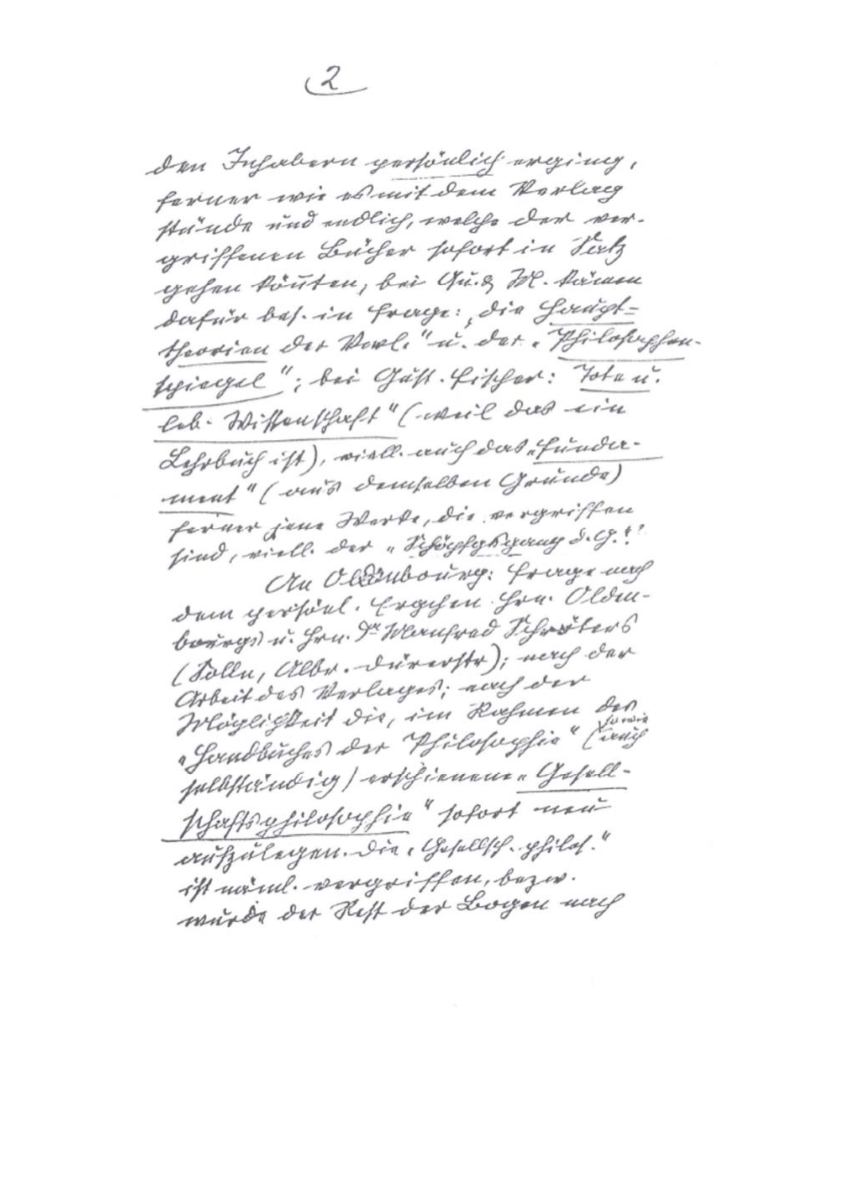 2
den Inhabern persönlich erging,
ferner wie es mit dem Verlag
stünde und endlich, welche der ver-
griffenen Bücher sofort in Satz
gehen könnten, bei Qu. & M. kämen
dafür bes. in Frage: „die Haupt-
theorien der Vwl." u. der „Philosophen-
spiegel"; bei Gust. Fischer: Tote u.
leb. Wissenschaft" (weil das ein
Lehrbuch ist), viell. auch das „Funda-
ment" (aus demselben Grunde)
ferner jene Werke, die vergriffen
sind, viell. der „Schöpfgsgang d. G."
An Oldenbourg: Frage nach
dem persönl. Ergehen Hrn. Olden-
bourgs u. Hrn. Dr Manfred Schröters
(Solln, Albr. Dürerstr); nach der
Arbeit des Verlages; nach der
Möglichkeit die, im Rahmen des
„Handbuches der Philosophie" (sowie auch
selbständig) erschienene „Gesell-
schaftsphilosophie" sofort neu
aufzulegen. Die „Gesellsch.philos."
ist näml. vergriffen, bezw.
wurde der Rest der Bogen nach